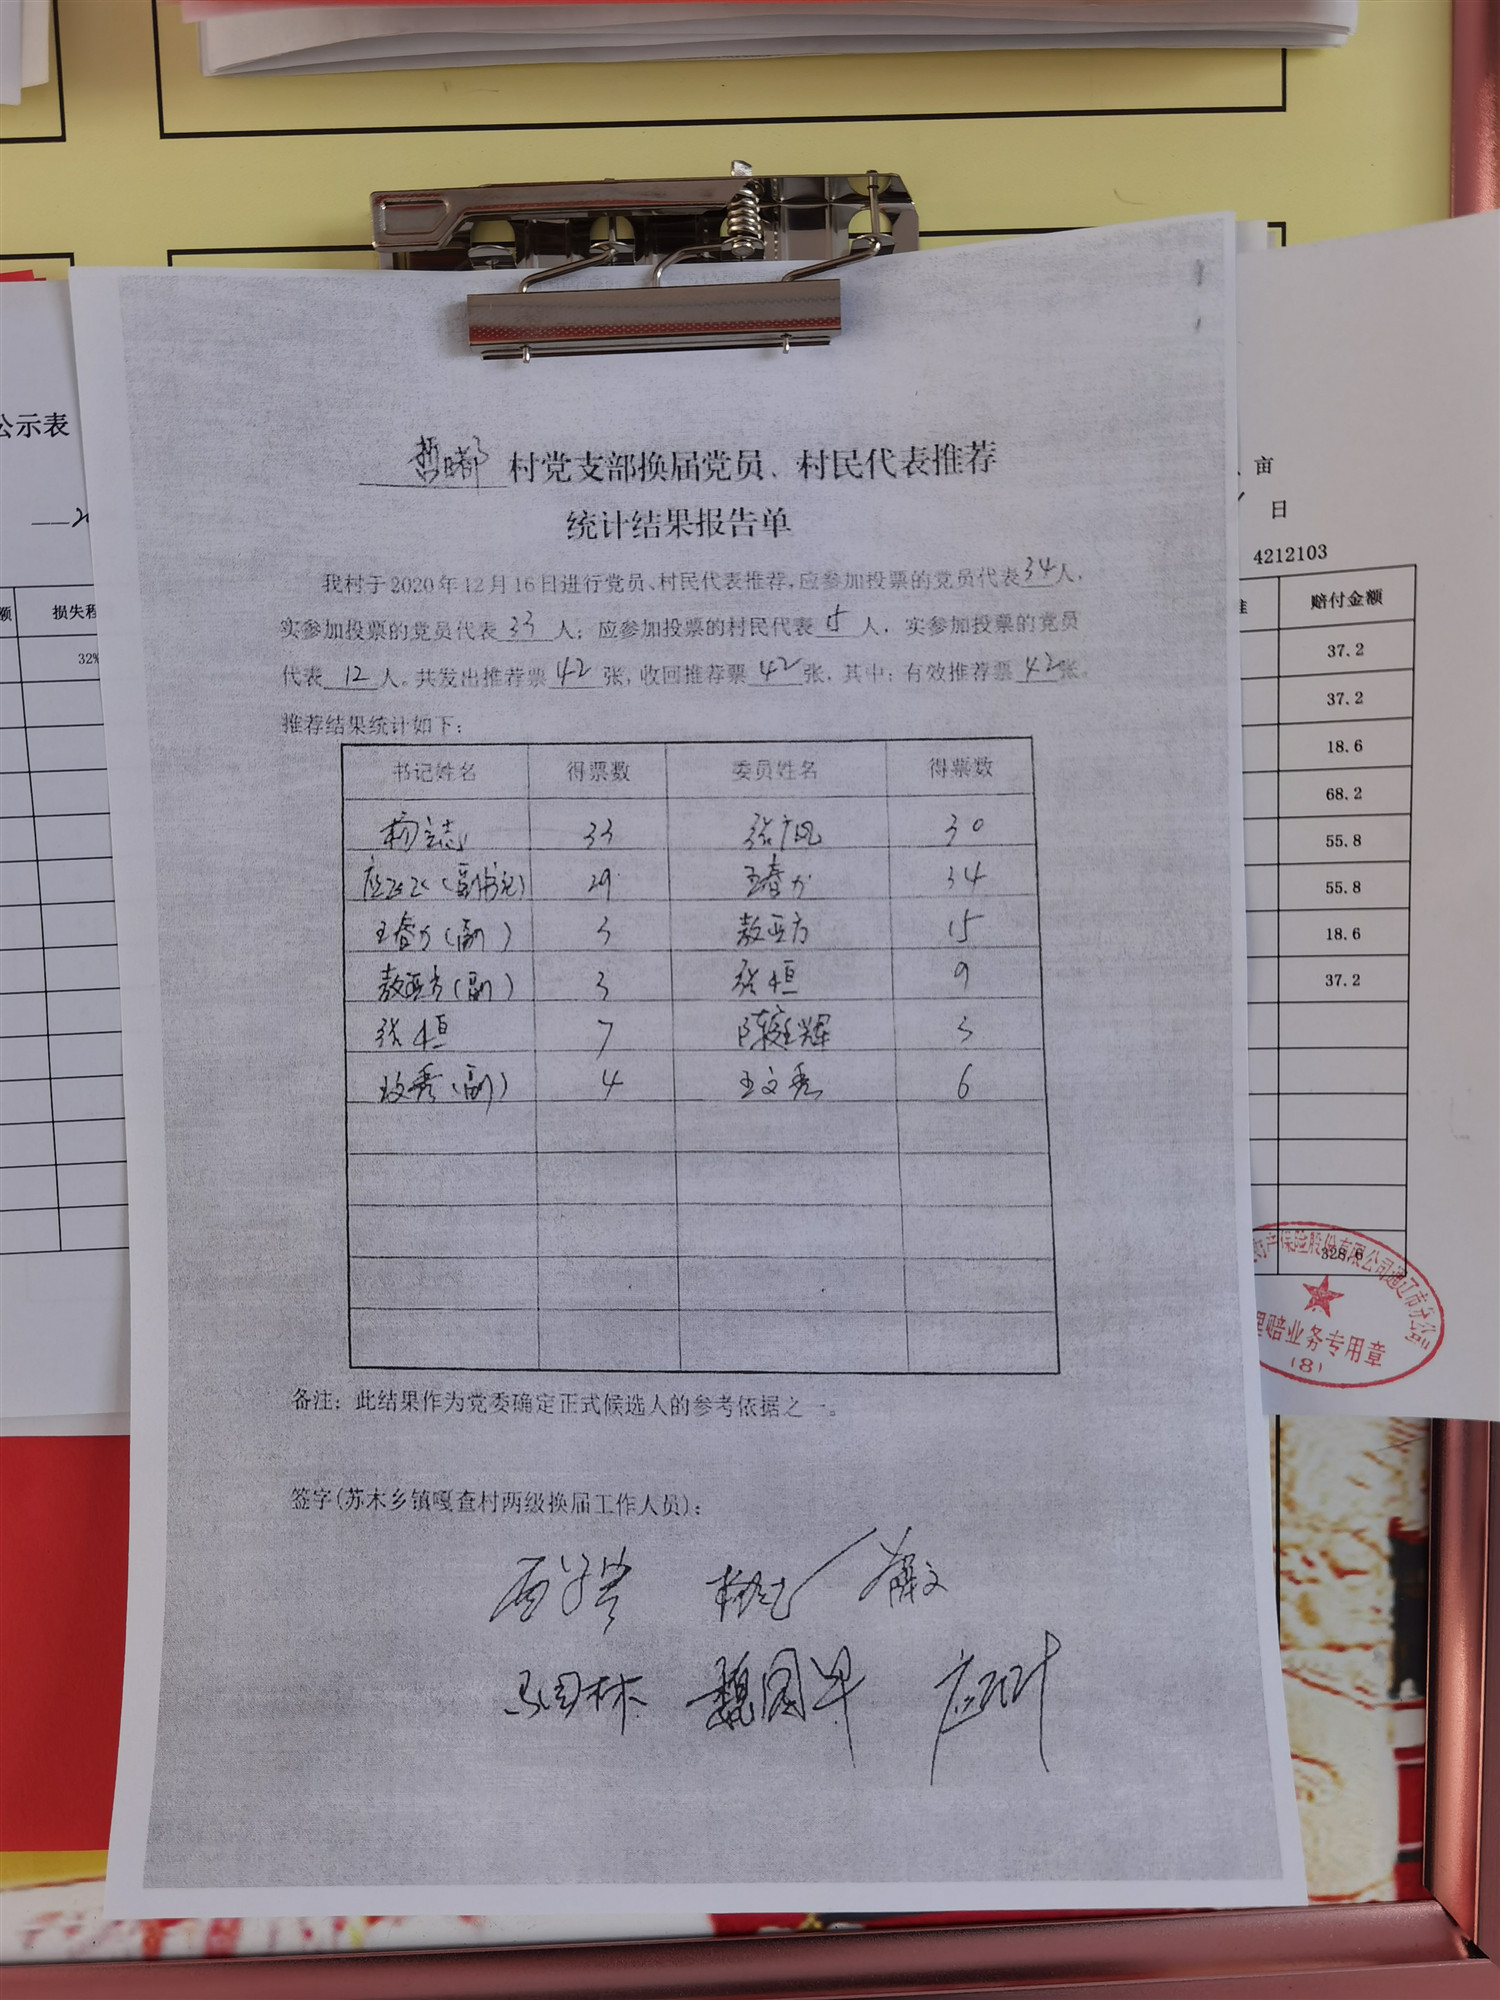 村党支部换届党员、村民代表推荐
统计结果报告单
我村于2020年12月16日进行党员、村民代表推荐,应参加投票的党员代表34人,
实参加投票的党员代表 33 人;应参加投票的村民代表 15 人,实参加投票的党员
代表 12 人。共发出推荐票 42 张,收回推荐票 42 张,其中:有效推荐票 42 张。
推荐结果统计如下:
书记姓名 得票数 委员姓名 得票数
33 30
(副书记) 29 34
(副) 3 敖亚方 15
敖亚方(副) 3 张恒 9
张恒 7 陈庭辉 3
王文秀(副) 4 王文秀 6
备注:此结果作为党委确定正式候选人的参考依据之一。
签字(苏木乡镇嘎查村两级换届工作人员):
公示表
损失程
32%
亩
日
4212103
赔付金额
37.2
37.2
18.6
68.2
55.8
55.8
18.6
37.2
328.6
保险股份有限公司通辽市分公司
理赔业务专用章
(8)